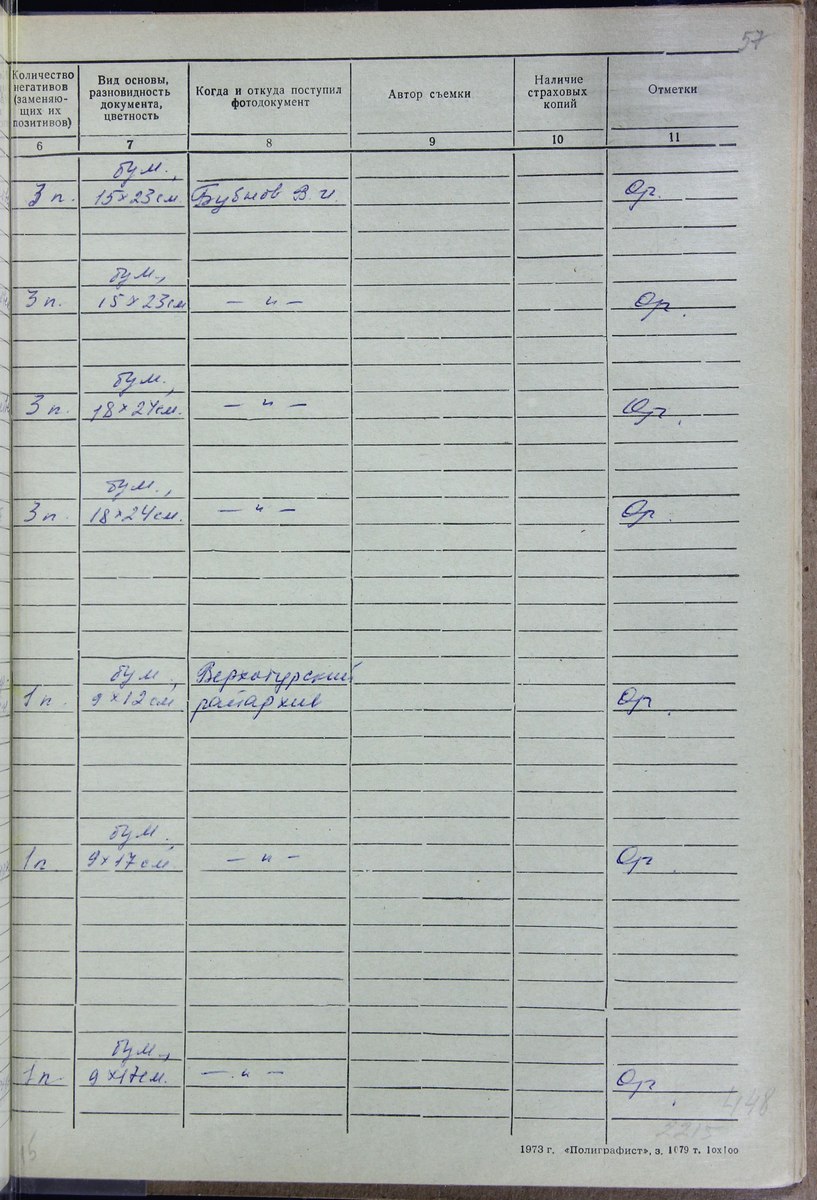 57
Количество негативов (заменяю-щих их позитивов)
Вид основы, разновидность документа, цветность
Когда и откуда поступил фотодокумент
Автор съемки
Наличие страховых копий
Отметки
6 7 8 9 10 11
бум.,
3 п. 15×23см. Бубнов В. И. Ор.
бум.,
3 п. 15×23см — и — Ор.
бум.,
3 п. 18×24см. — и — Ор.
бум.,
3 п. 18×24см. — и — Ор.
бум., Верхотурский
1 п. 9×12см райархив Ор.
бум.,
1 п. 9×17см — и — Ор.
бум.,
1 п. 9×17см. — и — Ор.
448
2215
1973 г. «Полиграфист», з. 1079 т. 10х100